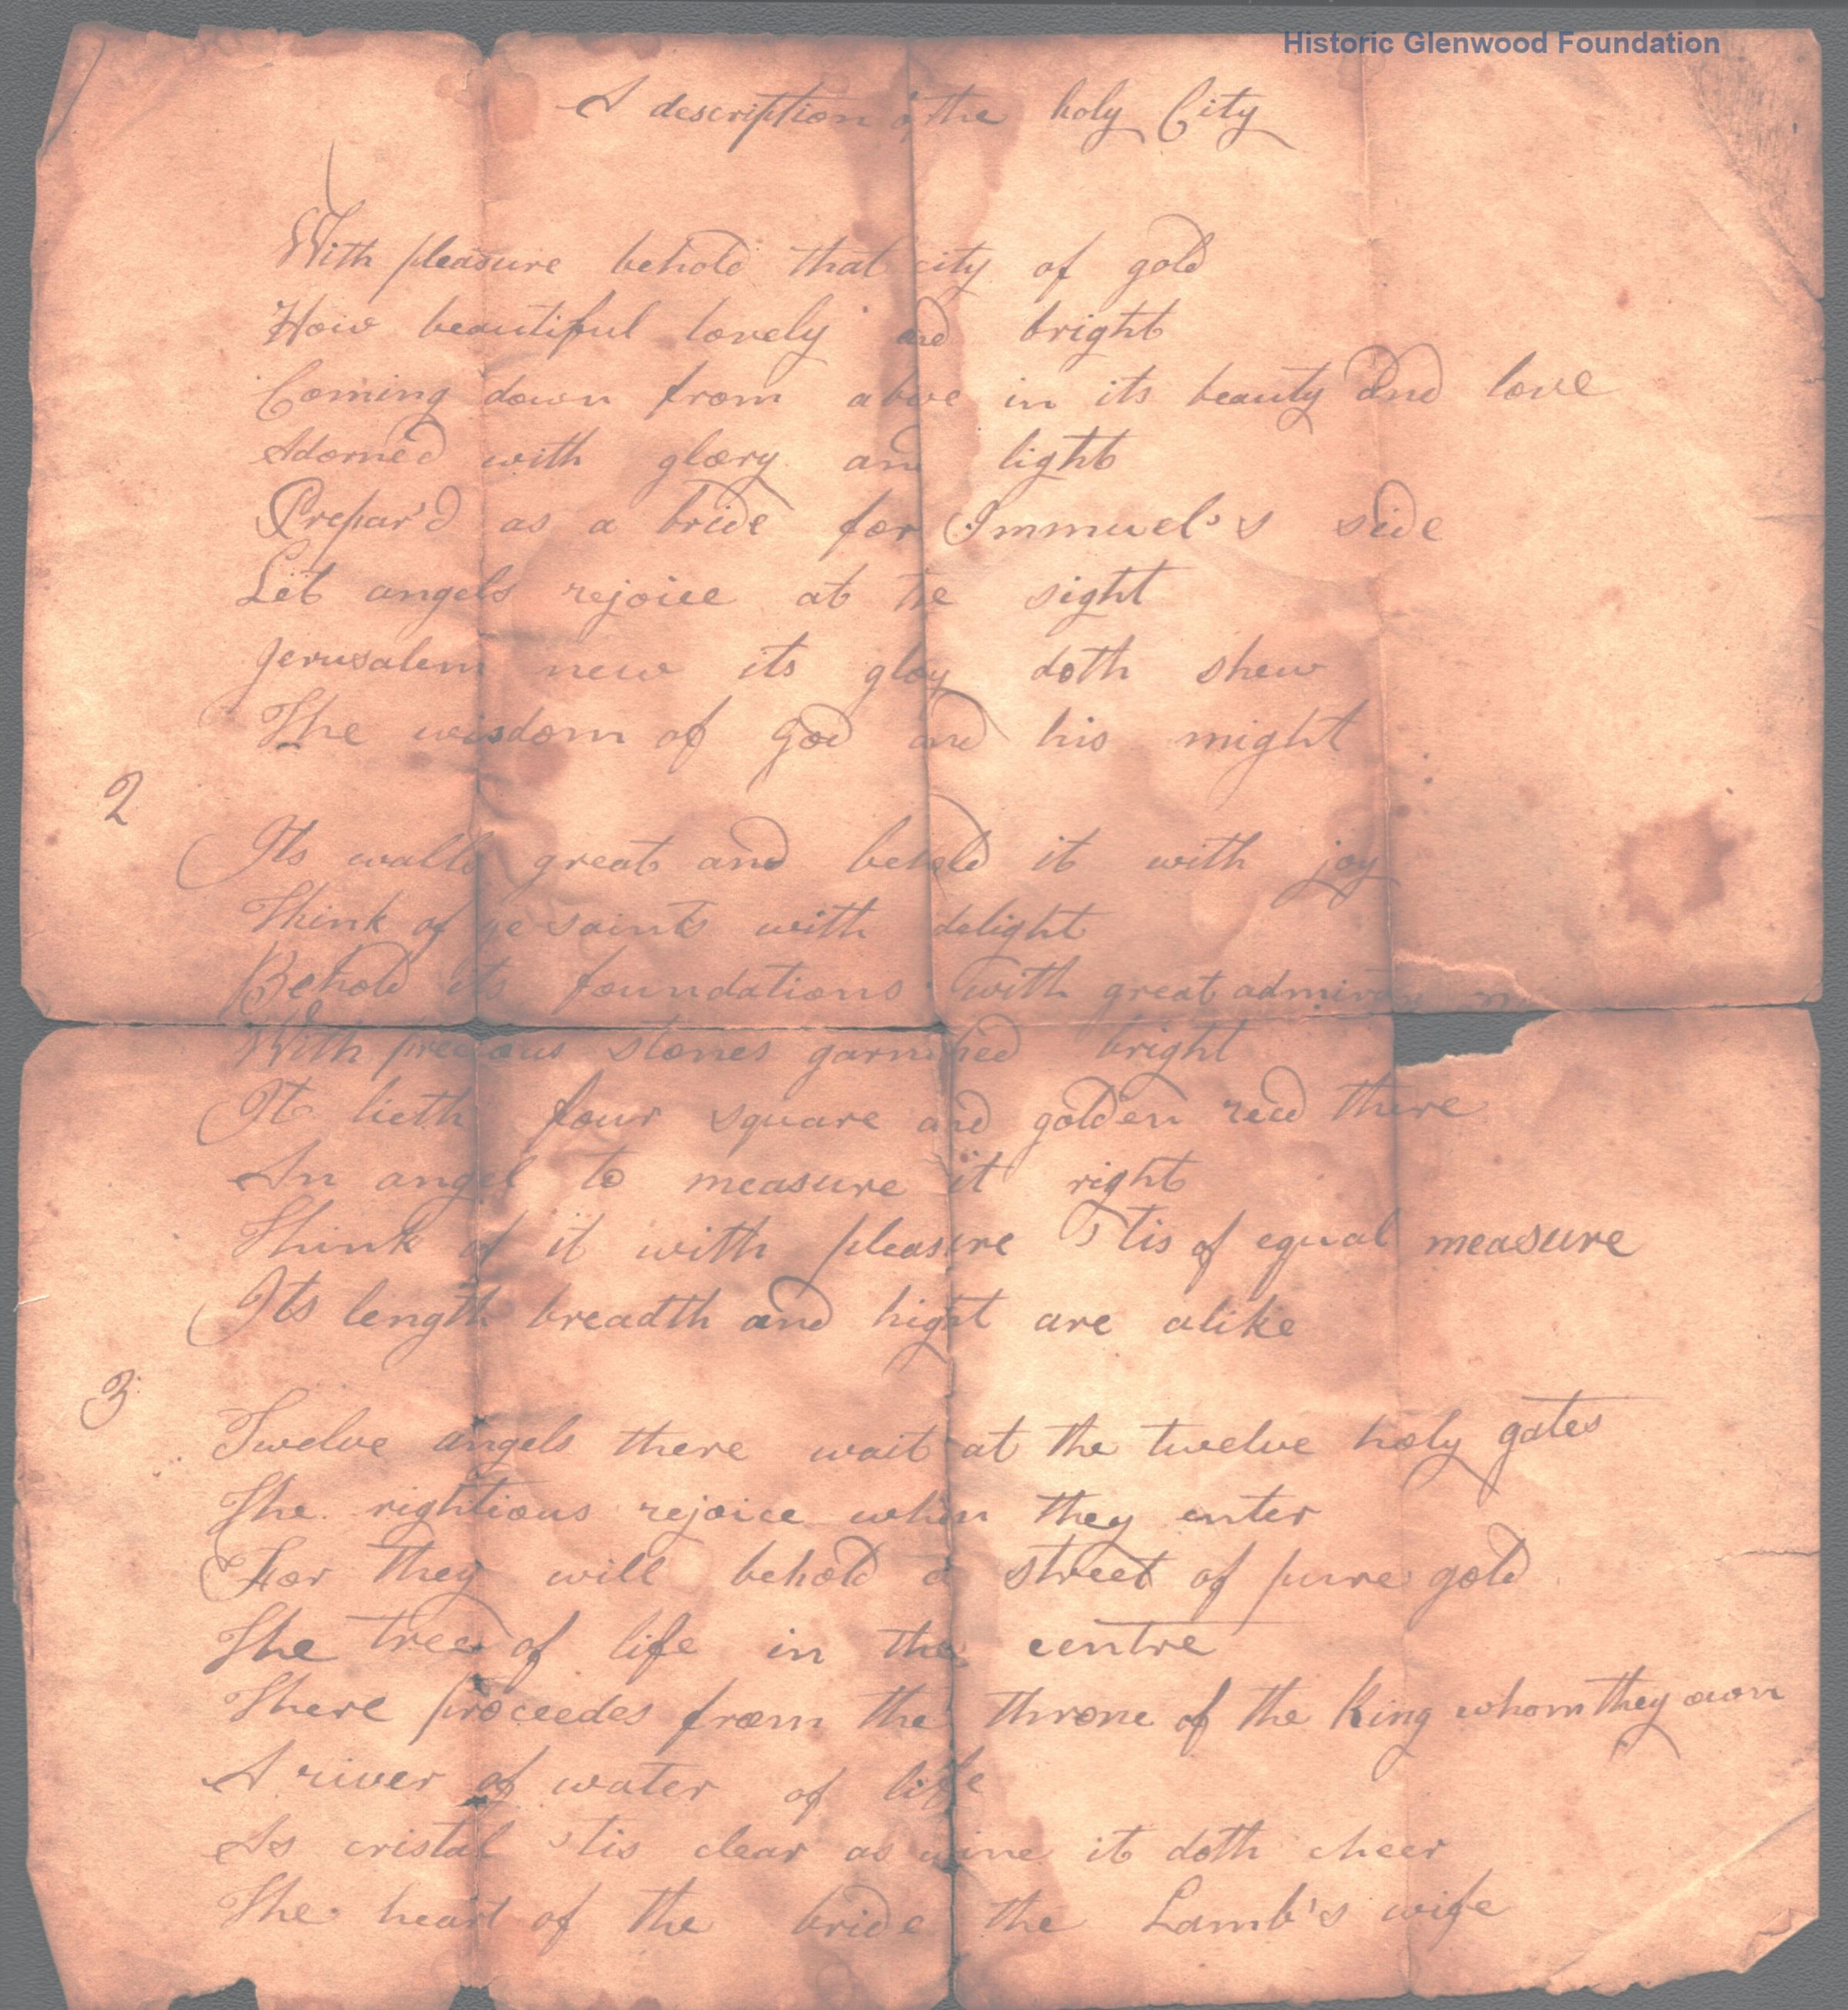 Historic Glenwood Foundation
A description of the holy City
With pleasure behold that city of gold
How beautiful lovely and bright
Coming down from above in its beauty and love
Adorned with glory and light
Prepar'd as a bride for Immuel's side
Let angels rejoice at the sight
Jerusalem new its gloy doth shew
The wisdom of God and his might
2
Its walls great and behold it with joy
Think of ye saints with delight
Behold its foundations with great
With precious stones garnished bright
It lieth four square and golden reed there
An angel to measure it right
Think of it with pleasure 'Tis of equal measure
Its length breadth and hight are alike
3
Twelve angels there wait at the twelve holy gates
The rightious rejoice when they enter
For they will behold a street of pure gold
The tree of life in the centre
There proceedes from the throne of the King whom they own
A river of water of life
As cristal 'tis clear as wine it doth cheer
The heart of the bride the Lamb's wife